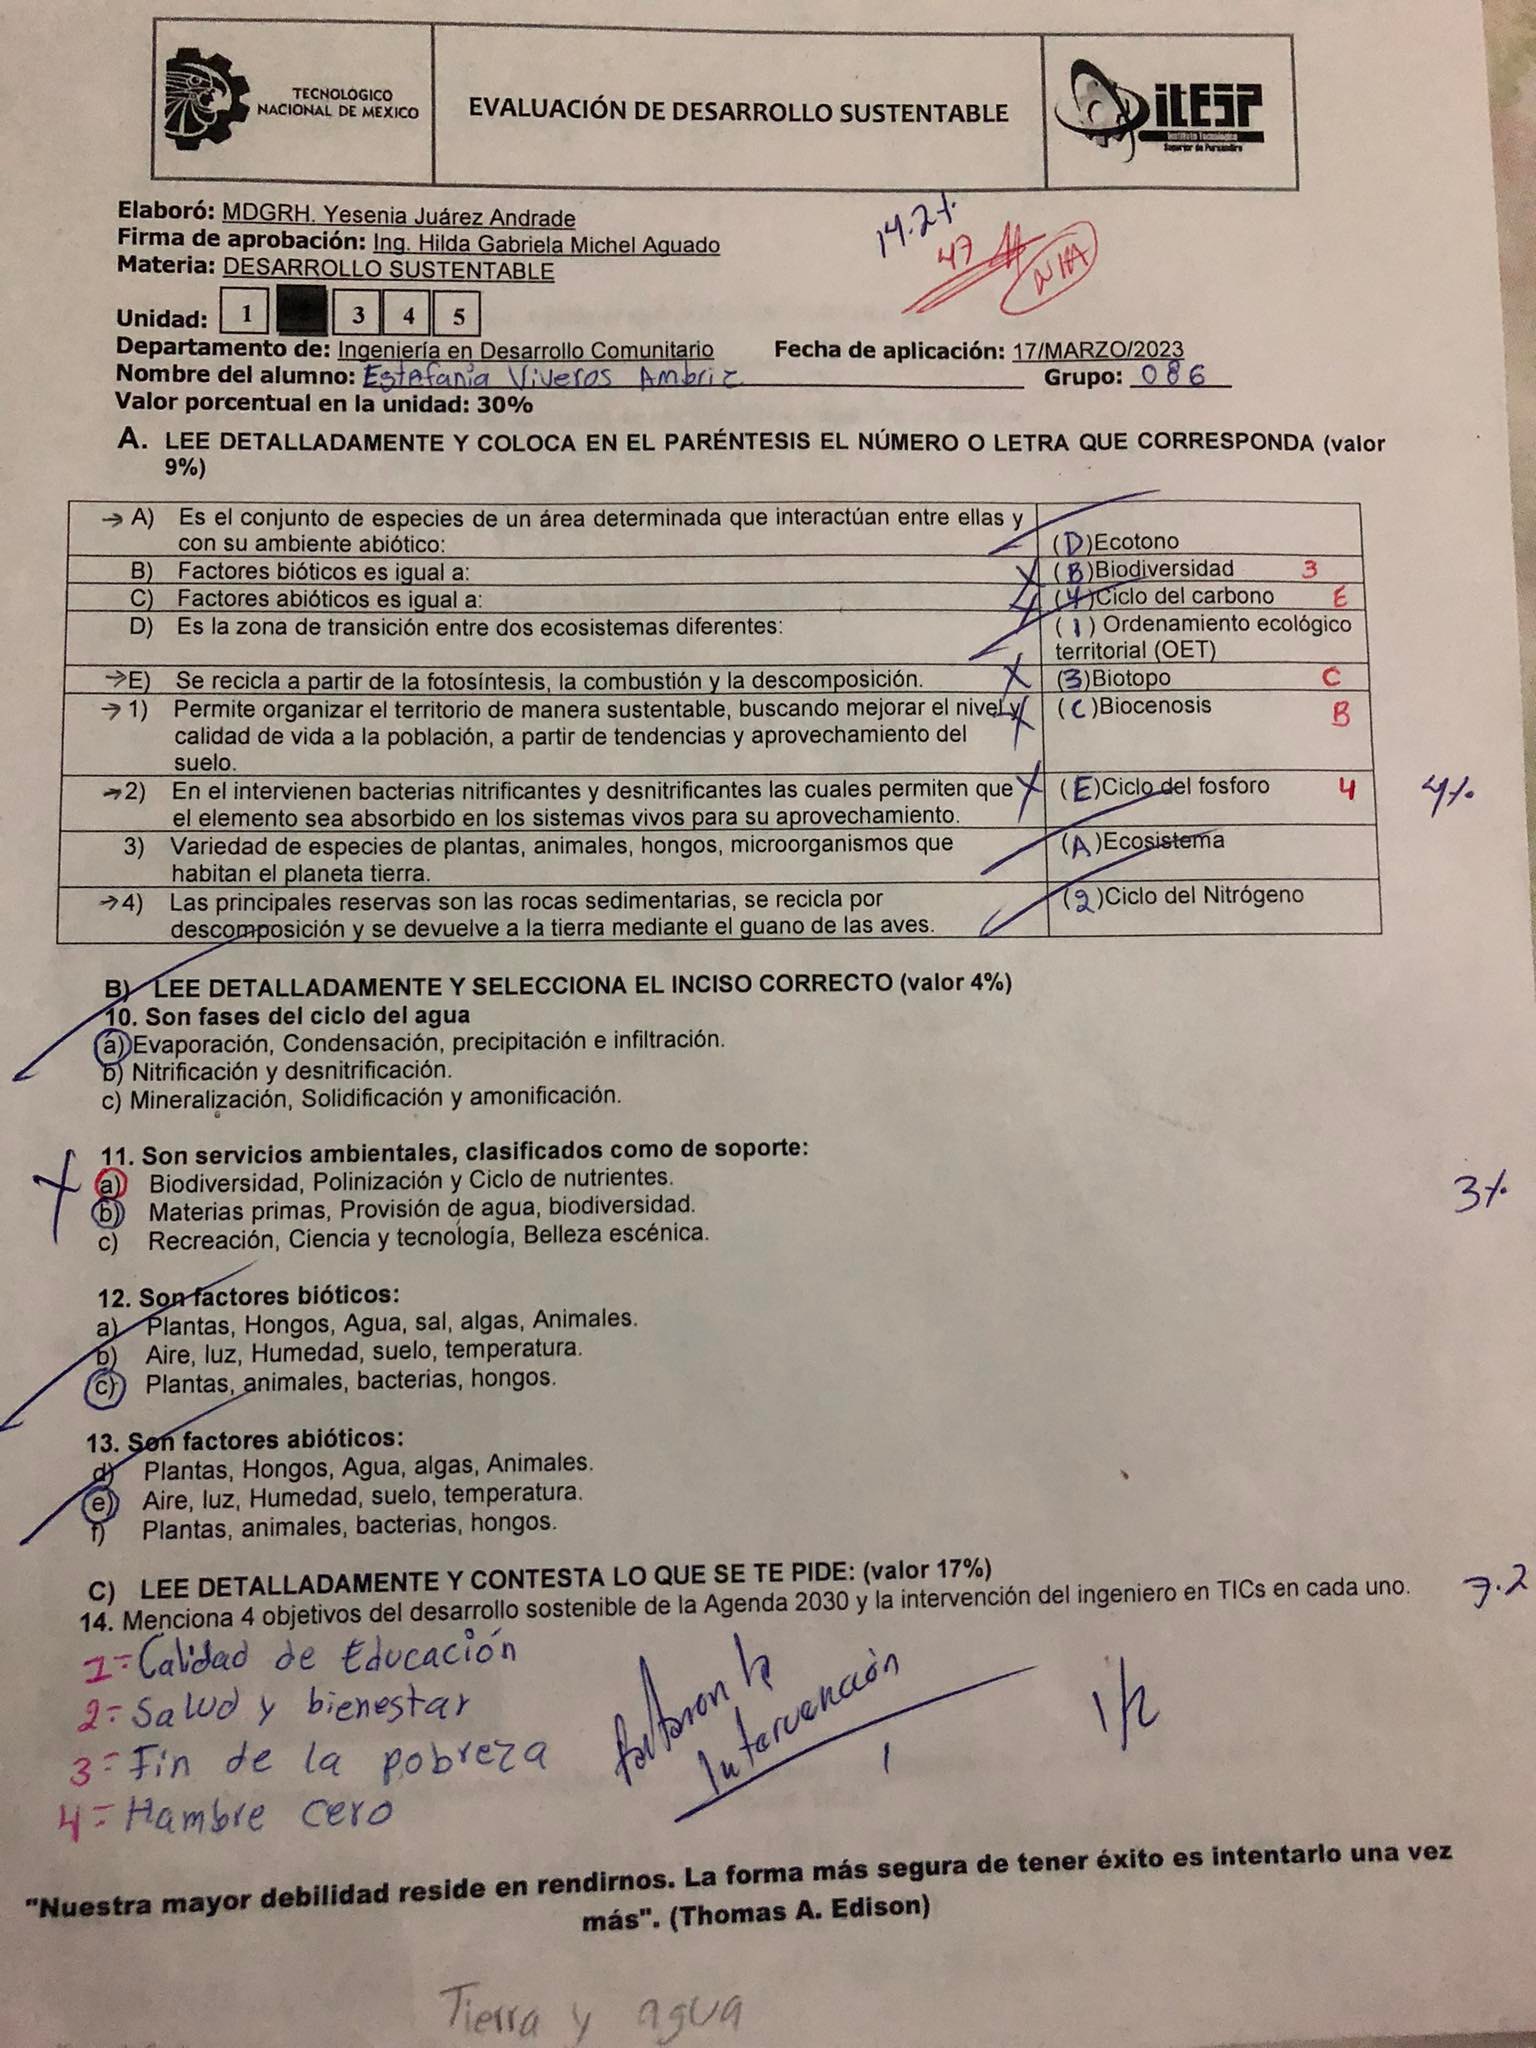 TECNOLÓGICO
NACIONAL DE MÉXICO
EVALUACIÓN DE DESARROLLO SUSTENTABLE
itESP
Instituto Tecnológico
Superior de Puruándiro
Elaboró: MDGRH. Yesenia Juárez Andrade
14.2%
Firma de aprobación: Ing. Hilda Gabriela Michel Aguado
47
NA
Materia: DESARROLLO SUSTENTABLE
Unidad: 1 3 4 5
Departamento de: Ingeniería en Desarrollo Comunitario Fecha de aplicación: 17/MARZO/2023
Nombre del alumno: Estefanía Viveros Ambriz Grupo: 086
Valor porcentual en la unidad: 30%
A. LEE DETALLADAMENTE Y COLOCA EN EL PARÉNTESIS EL NÚMERO O LETRA QUE CORRESPONDA (valor
9%)
→ A) Es el conjunto de especies de un área determinada que interactúan entre ellas y
con su ambiente abiótico:
(D)Ecotono
B) Factores bióticos es igual a: (B)Biodiversidad 3
C) Factores abióticos es igual a: (4)Ciclo del carbono E
D) Es la zona de transición entre dos ecosistemas diferentes: (1) Ordenamiento ecológico
territorial (OET)
→E) Se recicla a partir de la fotosíntesis, la combustión y la descomposición. (3)Biotopo C
→ 1) Permite organizar el territorio de manera sustentable, buscando mejorar el nivel y (C)Biocenosis B
calidad de vida a la población, a partir de tendencias y aprovechamiento del
suelo.
→2) En el intervienen bacterias nitrificantes y desnitrificantes las cuales permiten que (E)Ciclo del fosforo 4
el elemento sea absorbido en los sistemas vivos para su aprovechamiento.
4%
3) Variedad de especies de plantas, animales, hongos, microorganismos que (A)Ecosistema
habitan el planeta tierra.
→4) Las principales reservas son las rocas sedimentarias, se recicla por (2)Ciclo del Nitrógeno
descomposición y se devuelve a la tierra mediante el guano de las aves.
B) LEE DETALLADAMENTE Y SELECCIONA EL INCISO CORRECTO (valor 4%)
10. Son fases del ciclo del agua
a) Evaporación, Condensación, precipitación e infiltración.
b) Nitrificación y desnitrificación.
c) Mineralización, Solidificación y amonificación.
11. Son servicios ambientales, clasificados como de soporte:
a) Biodiversidad, Polinización y Ciclo de nutrientes.
3%
b) Materias primas, Provisión de agua, biodiversidad.
c) Recreación, Ciencia y tecnología, Belleza escénica.
12. Son factores bióticos:
a) Plantas, Hongos, Agua, sal, algas, Animales.
b) Aire, luz, Humedad, suelo, temperatura.
c) Plantas, animales, bacterias, hongos.
13. Son factores abióticos:
d) Plantas, Hongos, Agua, algas, Animales.
e) Aire, luz, Humedad, suelo, temperatura.
f) Plantas, animales, bacterias, hongos.
C) LEE DETALLADAMENTE Y CONTESTA LO QUE SE TE PIDE: (valor 17%)
7.2
14. Menciona 4 objetivos del desarrollo sostenible de la Agenda 2030 y la intervención del ingeniero en TICs en cada uno.
1= Calidad de Educación
2= Salud y bienestar
3= Fin de la pobreza
4= Hambre cero
faltaron la
intervención
1/2
"Nuestra mayor debilidad reside en rendirnos. La forma más segura de tener éxito es intentarlo una vez
más". (Thomas A. Edison)
Tierra y agua